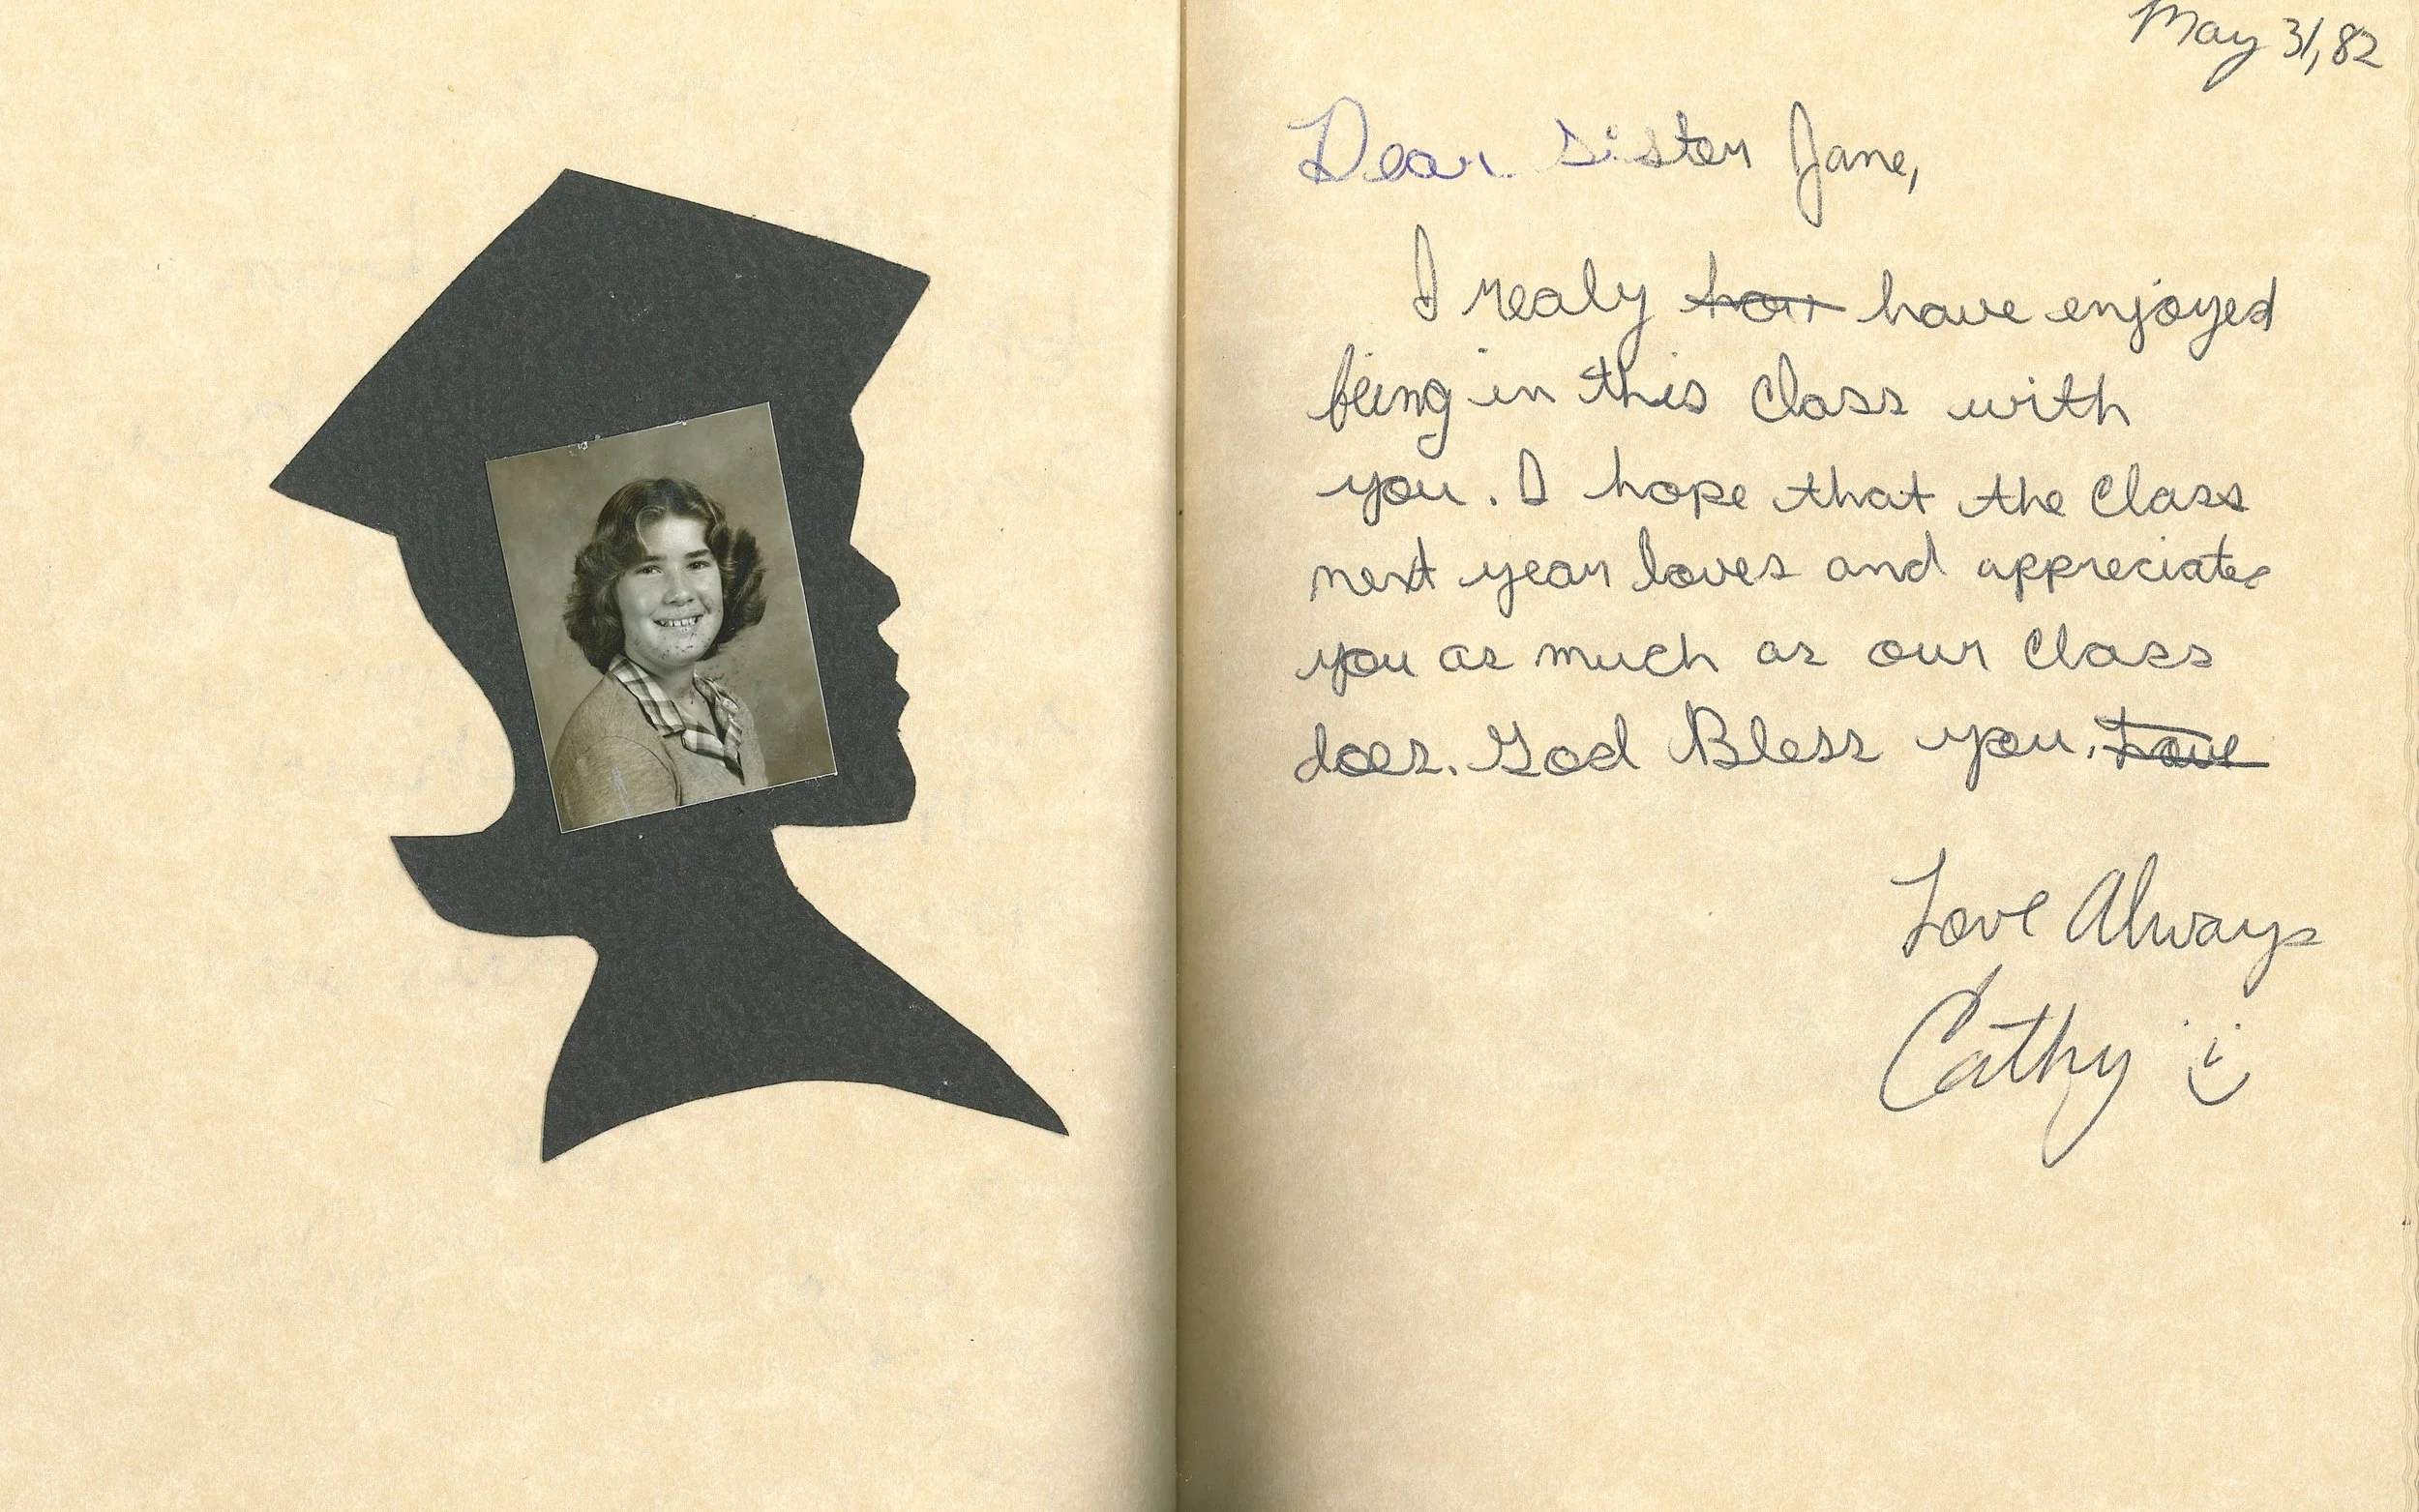 May 31, 82
Dear Sister Jane,
I realy have enjoyed
being in this class with
you. I hope that the class
next year loves and appreciates
you as much as our class
does. God Bless you. Love
Love Always
Cathy